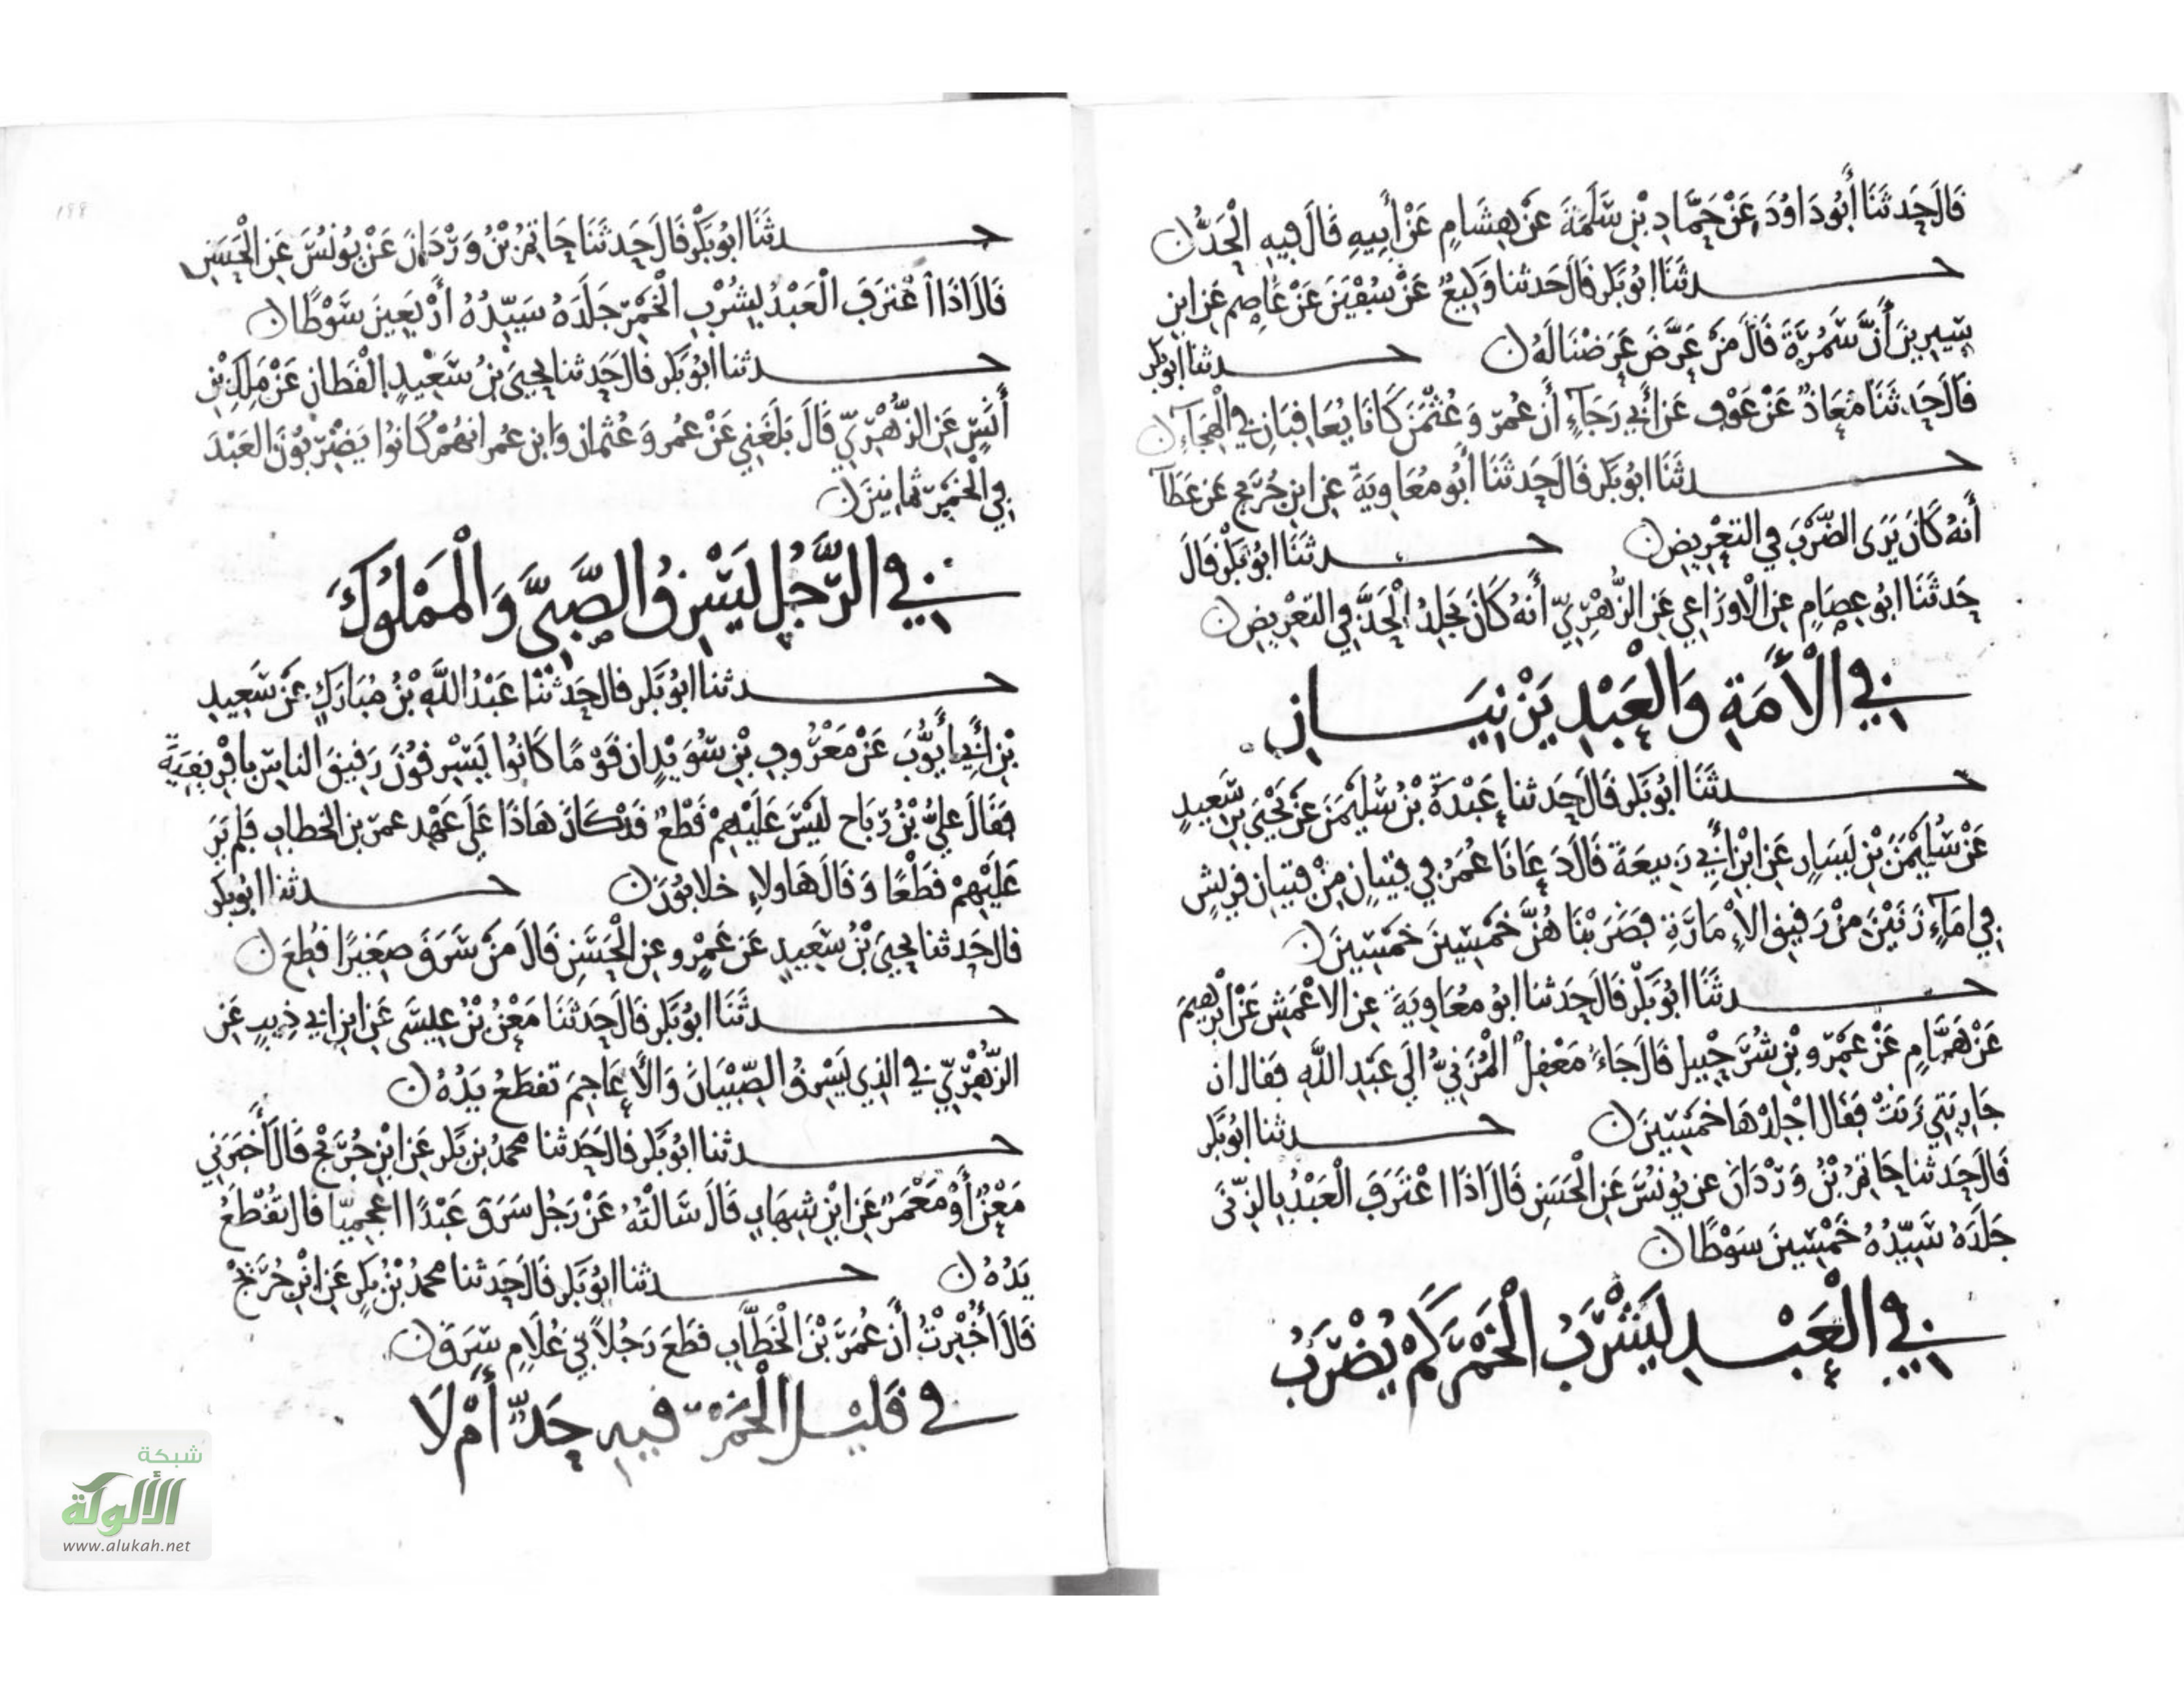 قَالَ حَدثَنَا أَبُو دَاوُدَ عَنْ حَمَّادِ بْنِ سَلَمَةَ عَنْ هِشَامٍ عَنْ أَبِيهِ قَالَ فِيهِ الْحَدُّ ن
حدثَنَا ابُو بَكر قَالَ حَدثنا وَكِيعٌ عَنْ سُفْيَنَ عَنْ عَاصِم عَنِ ابنِ
سِيرِينَ أَنَّ سَمُرَةَ قَالَ مَنْ عَرَّضَ عَرَضْنَا لَهُ ن حدثنا ابو بكر
قَالَ حَدثَنَا مُعَاذٌ عَنْ عَوْفٍ عَن أَبِي رَجَآءٍ أَن عُمَر وَعُثْمَنَ كَانَا يُعَاقِبَانِ فِي الْهِجَآءِ ن
حدثَنَا ابُو بَكر قَالَ حَدثَنَا أَبُو مُعَاوِيَةَ عن ابنِ جُرَيج عَن عَطَآ
أَنهُ كَانَ يَرَى الضَّرْبَ فِي التعْرِيضِ ن حدثَنَا ابُو بَكْر قَالَ
حَدثَنَا ابُو عِصَامٍ عنِ الاوزَاعِي عَنِ الزُّهْرِيّ أَنهُ كَانَ يَجلِدُ الْحَدَّ فِي التعْرِيضِ ن
فِي الْأَمَةِ وَالْعَبْدِ يَزْنِيَانِ
حدثَنَا ابُو بَكر قَالَ حَدثنا عَبْدَةُ بْنُ سُلَيْمَنَ عَنْ يَحْيَى بنِ سَعِيدٍ
عَنْ سُلَيْمَنَ بْنِ يَسَارٍ عَنِ ابْنِ أَبِي رَبِيعَةَ قَالَ دَعَانَا عُمَرُ فِي فِتيَانٍ مِنْ فِتيَانِ قريشٍ
فِي امَآءٍ زَنَيْنَ مِنْ رَقِيقِ الْإِمَارَةِ فَضَرَبْنَاهُنَّ خَمْسِينَ خَمْسِينَ ن
حدثَنَا ابُو بَكْر قَالَ حَدثنا ابُو مُعَاوِيَةَ عنِ الاعْمَشِ عَنْ ابْرهِيمَ
عَنْ هَمَّامٍ عَنْ عَمْرِو بْنِ شُرَحْبِيل قَالَ جَاءَ مَعْقِلٌ الْمُزَنِيُّ الَى عَبْدِ اللَّهِ فَقَال ان
جَارِيَتِي زَنَتْ فَقَال اجْلِدْهَا خَمْسِينَ ن حدثنا ابُو بَكر
قَالَ حَدثنا حَاتِمُ بْنُ وَرْدَانَ عن يُونُسَ عَنِ الْحَسَنِ قَالَ اذَا اعْتَرَفَ الْعَبْدُ بِالزِّنَى
جَلَدَهُ سَيِّدُهُ خَمْسِينَ سَوْطًا ن
فِي الْعَبْدِ يَشْرَبُ الْخَمْرَ كَمْ يُضْرَبُ
١٩٩
حدثَنَا ابُو بَكْر قَالَ حَدثَنَا حَاتِمُ بْنُ وَرْدَانَ عَنْ يُونُسَ عَنِ الْحَسَنِ
قَالَ اذَا اعْتَرَفَ الْعَبْدُ بِشُرْبِ الْخَمْرِ جَلَدَهُ سَيِّدُهُ أَرْبَعِينَ سَوْطًا ن
حدثنا ابُو بَكر قالَ حَدثنا يَحيَى بْنُ سَعِيْدٍ الْقَطان عَنْ مَلِكِ بْنِ
أَنَسٍ عَنِ الزُّهْرِيِّ قَالَ بَلَغَنِي عَنْ عُمر وَعُثمان وَابن عُمر انهُمْ كَانُوا يَضْرِبُونَ العَبْدَ
فِي الْخَمْرِ ثمانِينَ ن
فِي الرَّجُلِ يَسْرِقُ الصَّبِيَّ وَالْمَمْلُوكَ
حدثنا ابُو بَكر قال حَدثَنَا عَبْدُ اللَّهِ بْنُ مُبَارَكٍ عَنْ سَعِيدِ
بْنِ أَبِي أَيُّوبَ عَنْ مَعْرُوفِ بْنِ سُوَيْدٍ ان قَوْمًا كَانُوا يَسْرِقُونَ رَقِيقَ الناسِ بافْرِيقِيَةَ
فَقَالَ عَلِيُّ بْنُ رَبَاح لَيْسَ عَلَيْهِمْ قَطْعٌ قَدْ كَانَ هَاذَا عَلَى عَهْد عمرَ بن الخَطاب فَلم يَرَ
عَلَيْهِمْ قَطْعًا وَقَالَ هَاولاءِ خلابُونَ ن حدثنا ابو بكر
قال حَدثنا يحيَى بْنُ سَعِيدٍ عَن عَمْرٍو عنِ الْحَسَنِ قَالَ مَنْ سَرَقَ صَغِيرًا قُطِعَ ن
حدثَنَا ابُو بَكر قَالَ حَدثَنَا مَعْنُ بْنُ عِيسَى عَنِ ابنِ ابي ذِيبٍ عَنِ
الزُّهْرِيّ في الذِي يَسْرِقُ الصِّبْيَانَ وَالْأَعَاجِمَ تقطَعُ يَدُهُ ن
حدثنا ابُو بَكر قالَ حَدثنا محمدُ بن بَكر عَنِ ابْنِ جُرَيْج قَالَ أَخبَرَنِي
مَعْنٌ أَوْ مَعْمَرٌ عَنِ ابْنِ شِهَابٍ قَالَ سَالْتُهُ عَنْ رَجُل سَرَقَ عَبْدًا اعجمِيًّا قال تُقْطَعُ
يَدُهُ ن حدثنا ابُو بَكر قَالَ حَدثنا محمدُ بْنُ بَكر عَنِ ابْنِ جُرَيْج
قَالَ أُخْبِرْتُ أَنَّ عُمَرَ بْنَ الْخَطَّابِ قطَعَ رَجُلاً فِي غُلَامٍ سَرَقَ ن
في قَلِيْلِ الْخَمْرِ فِيهِ حَدٌّ أَمْ لَا
شبكة
الألوكة
www.alukah.net